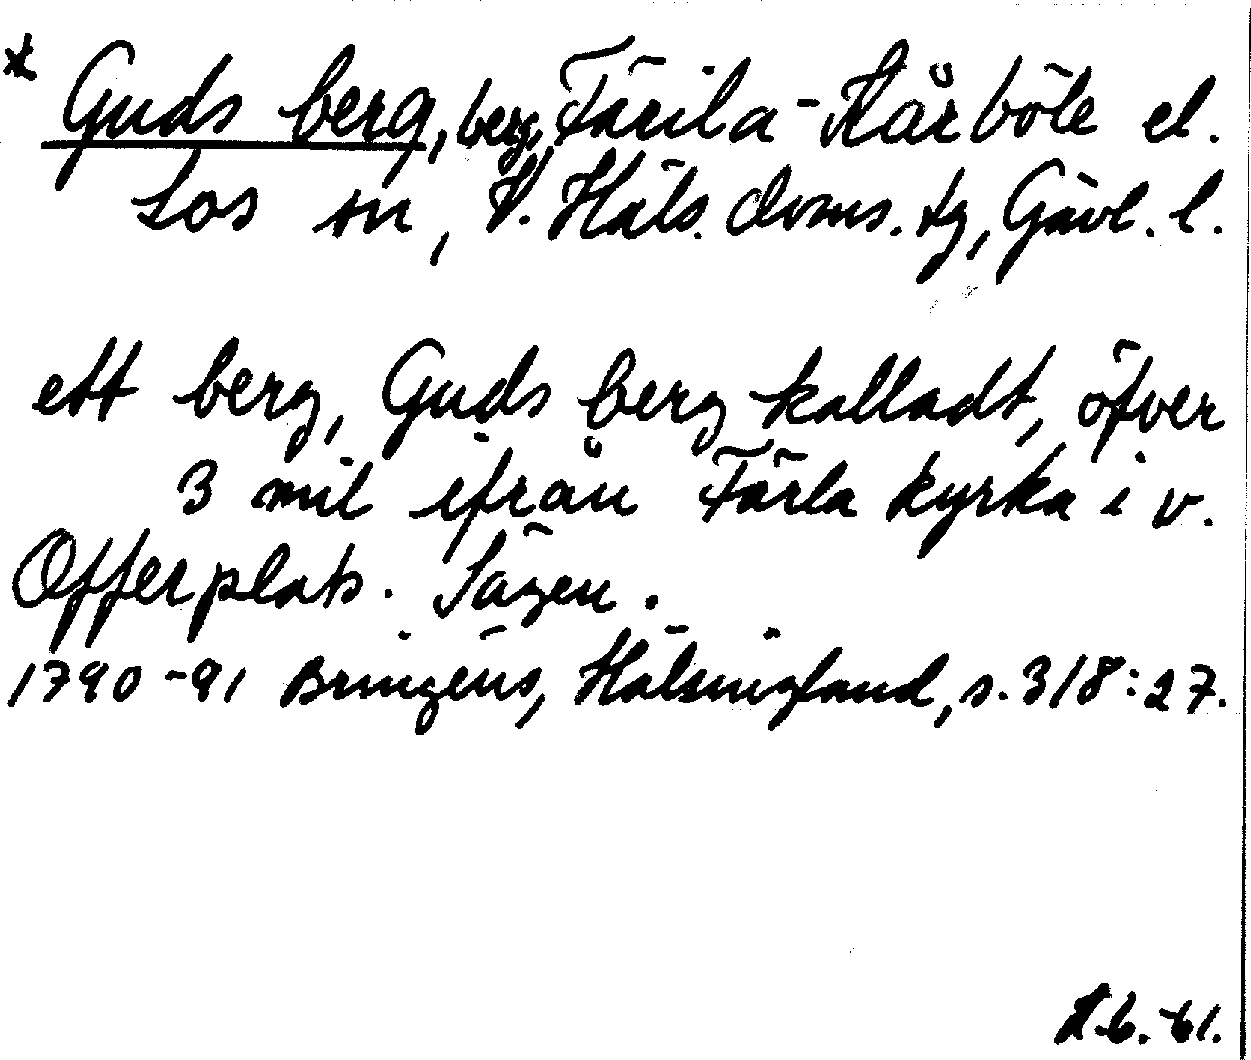 * Guds berg, berg, Färila-Kårböle el.
Los sn, V. Häls. doms. tg, Gävl. l.
ett berg, Guds berg kalladt, öfver
3 mil ifrån Färla kyrka i v.
Offerplats. Sägen.
1790-91 Bringéus, Hälsingland, s. 318:27.
-61.